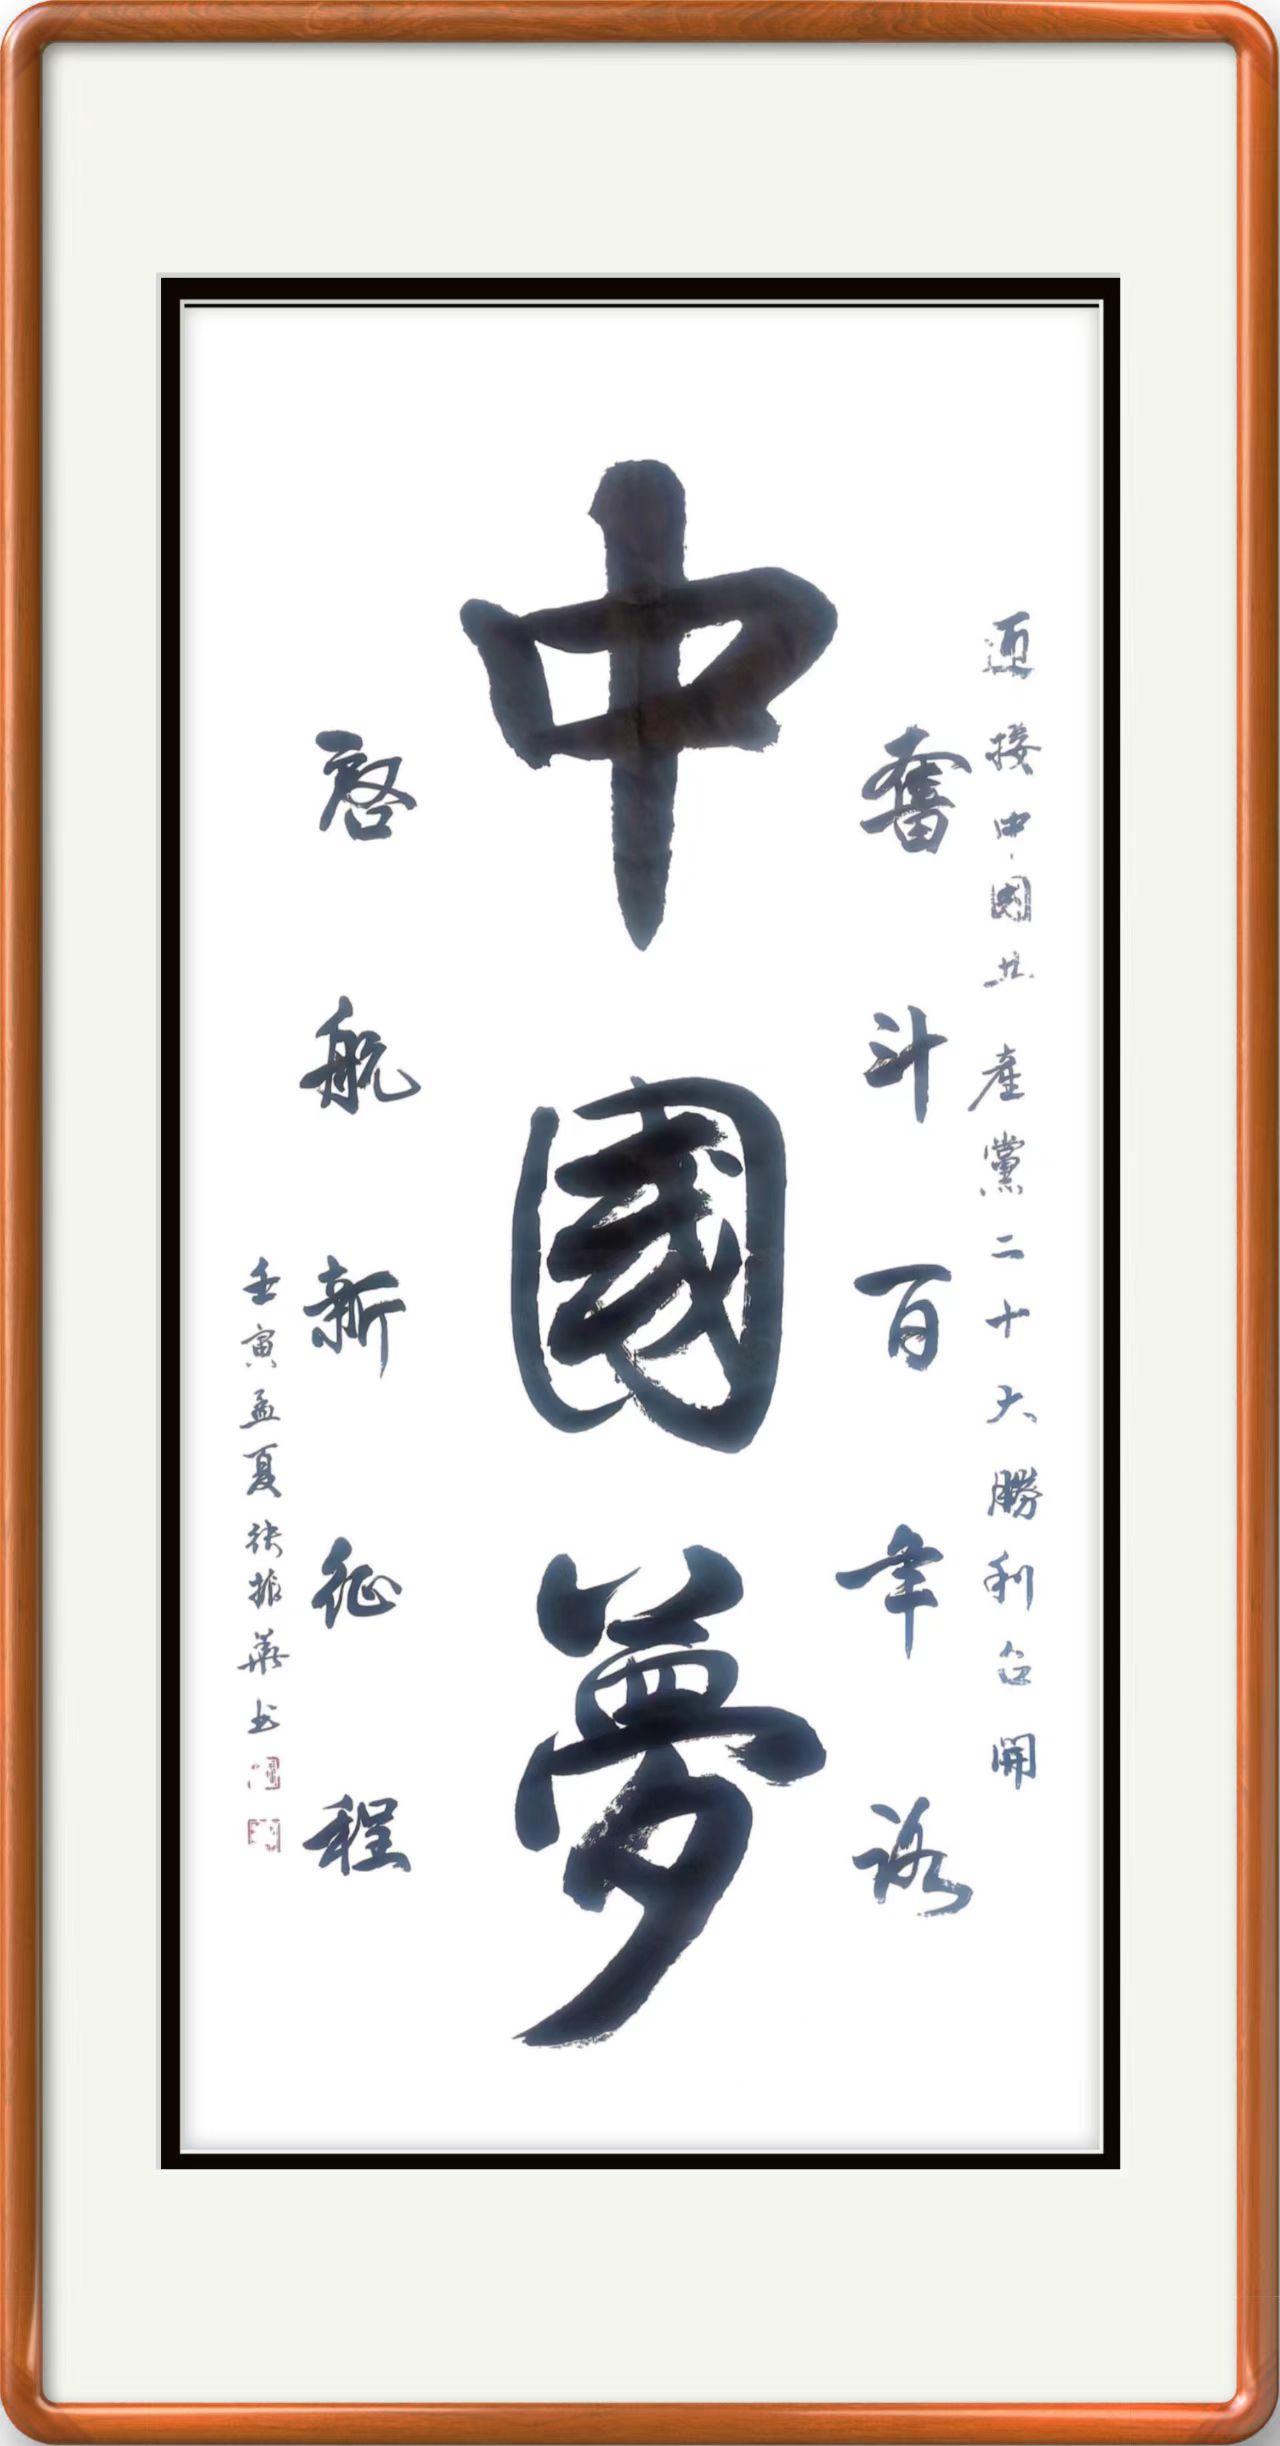 迎接中國共產黨二十大勝利召開
奮斗百年路
中國夢
啓航新征程
壬寅孟夏振華书